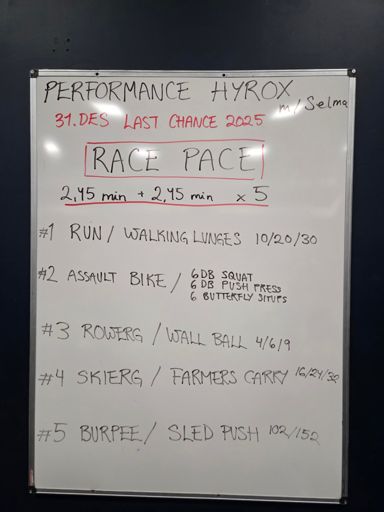 PERFORMANCE HYROX
m/Selma
31.DES LAST CHANCE 2025
RACE PACE
2,45 min + 2,45 min x 5
#1 RUN / WALKING LUNGES 10/20/30
#2 ASSAULT BIKE / 6 DB SQUAT
6 DB PUSH PRESS
6 BUTTERFLY SITUPS
#3 ROWERG / WALL BALL 4/6/9
#4 SKIERG / FARMERS CARRY 16/24/32
#5 BURPEE / SLED PUSH 102/152